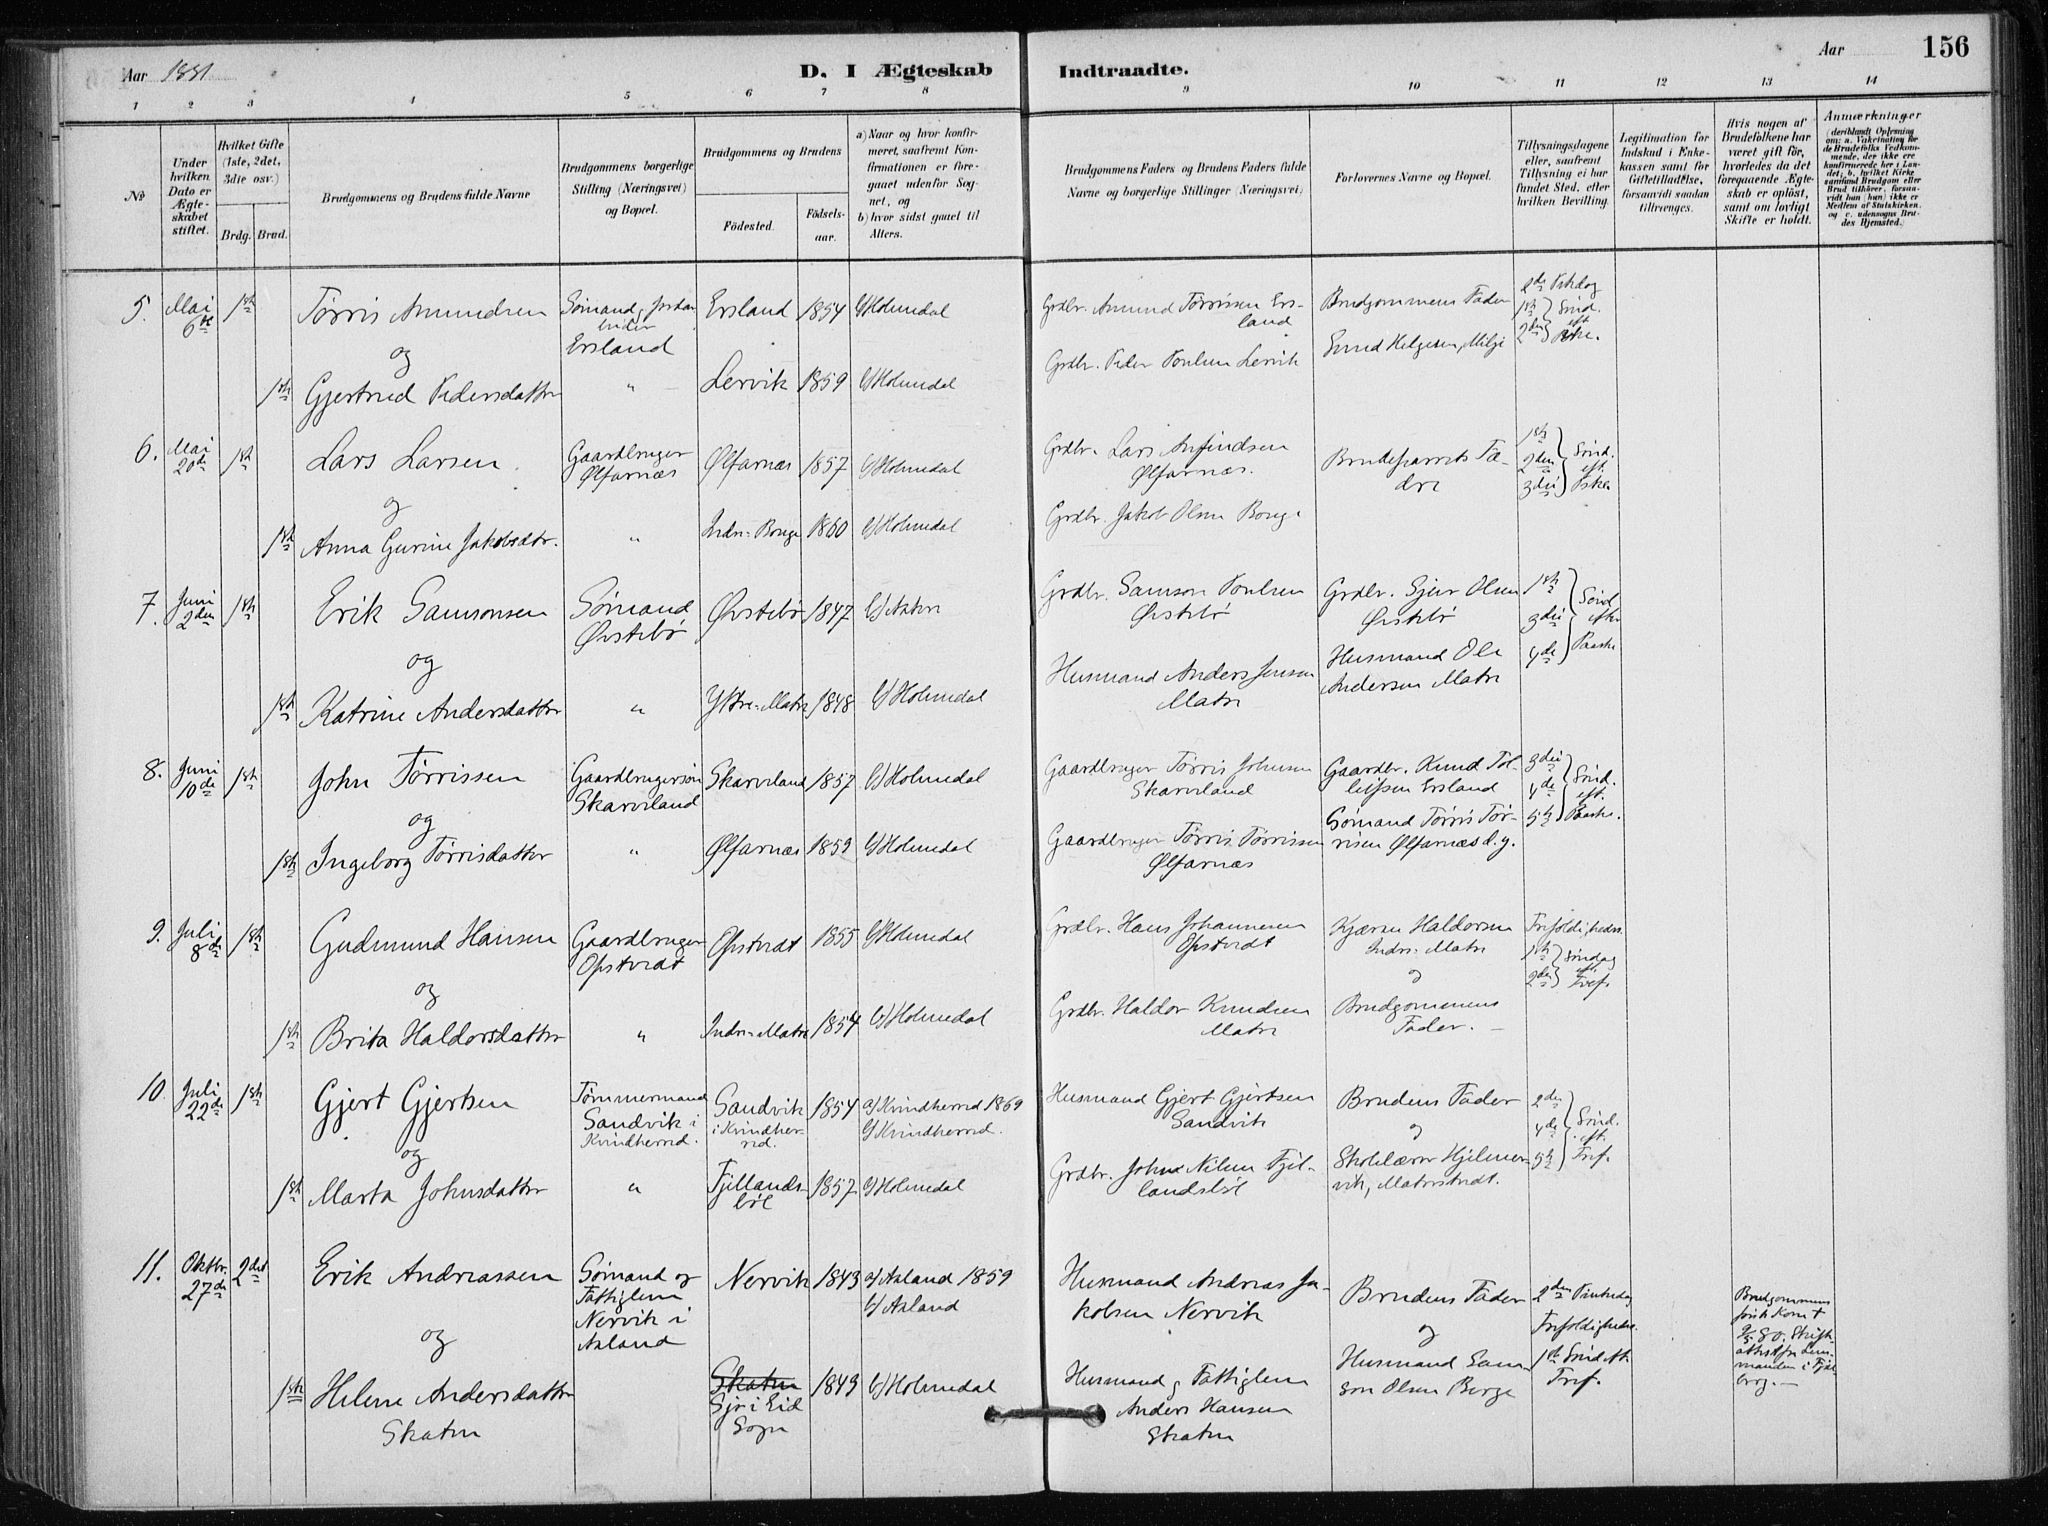 Aar 1881
D. I Ægteskab Indtraadte.
Aar 156
1 2 3 4 5 6 7 8 9 10 11 12 13 14
No
Under hvilken Dato er Ægteskabet stiftet.
Hvilket Gifte (1ste, 2det, 3die osv.)
Brdg. Brud.
Brudgommens og Brudens fulde Navne
Brudgommens borgerlige Stilling (Næringsvei) og Bopæl.
Brudgommens og Brudens
Födested.
Födselsaar.
a) Naar og hvor konfirmeret, saafremt Konfirmationen er foregaaet udenfor Sognet, og
b) hvor sidst gaaet til Alters.
Brudgommens Faders og Brudens Faders fulde Navne og borgerlige Stillinger (Næringsvei)
Forlovernes Navne og Bopæl.
Tillysningsdagene eller, saafremt Tillysning ei har fundet Sted, efter hvilken Bevilling.
Legitimation for Indskud i Enkekassen samt for Giftetilladelse, forsaavidt saadan tiltrænges.
Hvis nogen af Brudefolkene har været gift för, hvorledes da det foregaaende Ægteskab er oplöst, samt om lovligt Skifte er holdt.
Anmærkninger
5. Mai 6te 1ste Tørris Amundsen
Ersland
Ersland 1854 b) Holmedal
Grdbr. Amund Tørrissen Ersland
Brudgommens Fader
og
1ste Gjertrud Pedersdatter " Lervik 1859 b) Holmedal
Grdbr. Peder Poulsen Lervik
6. Mai 20de 1ste Lars Larsen
Gaardbruger Ølfarnæs
Ølfarnæs 1857 b) Holmedal
Grdbr. Lars Anfindsen Ølfarnæs.
Brudeparrets Fædre
1ste 2den 3die Sönd. eft. Paske
og
1ste Anna Gurine Jakobsdtr. " Indre-Borge 1860 b) Holmedal
Grdbr. Jakob Olsen Borge
7. Juni 2den 1ste Erik Samsonsen
Sömand Øvstebö
Øvstebö 1847
Grdbr. Samson Poulsen Øvstebö
Grdbr. Sjur Olsen Øvstebö
1ste 3die 4de Sönd. efter Paaske
og
1ste Katrine Andersdatter " Ytre-Matre 1848 b) Holmedal
Husmand Anders Jensen Matre
Husmand Ole Andersen Matre
8. Juni 10de 1ste John Tørrissen
Gaardbrugersön Skarveland
Skarveland 1857 b) Holmedal
Gaardbruger Tørris Johnsen Skarveland
Gaardbr. Knud Tolleifsen Ersland
3die 4de 5te Sönd. eft. Paaske.
og
1ste Ingeborg Tørrisdatter " Ølfarnæs 1859 b) Holmedal
Gaardbruger Tørris Tørrissen Ølfarnæs
Sömand Tørris Tørrisen Ølfarnæs d.y.
9. Juli 8de 1ste Gudmund Hansen
Gaardbruger Opstvedt
Opstvedt 1855 b) Holmedal
Grdbr. Hans Johannesen Opstvedt
Kjærne Haldorsen Indre-Matre
Trefoldigheds.
1ste 2den Söndag eft. Tref.
og
1ste Brita Haldorsdatter " Indre-Matre 1854 b) Holmedal
Grdbr. Haldor Knudsen Matre
og Brudgommens Fader.
10. Juli 22de 1ste Gjert Gjertsen
Tømmermand Sandvik i Kvindherred.
Sandvik i Kvindherred. 1854
a) Kvindherred 1869
b) Kvindherred.
Husmand Gjert Gjertsen Sandvik
Brudens Fader
2den 4de 5te Sönd. eft. Tref.
og
1ste Marta Johnsdatter " Fjellandsböl 1857 b) Holmedal
Grdbr. John Nilsen Fjellandsböl
og Skolelærer Hjelmervik, Matrestvedt.
11. Oktbr. 27de 2det Erik Andreassen
Sömand og Fattiglem Nervik i Axland
Nervik 1843
a) Axland 1859
b) Axland
Husmand Andreas Jakobsen Nervik
Brudens Fader
2den Pintsdag
Trefoldigheds.
1ste Sönd. eft. Tref.
Brudgommens første Kone †
og
1ste Helene Andersdatter Skaten
Skaten
Eid Sogn 1843 b) Holmedal
Husmand og Fattiglem Anders Hansen Skaten
og Husmand Samson Olsen Borge